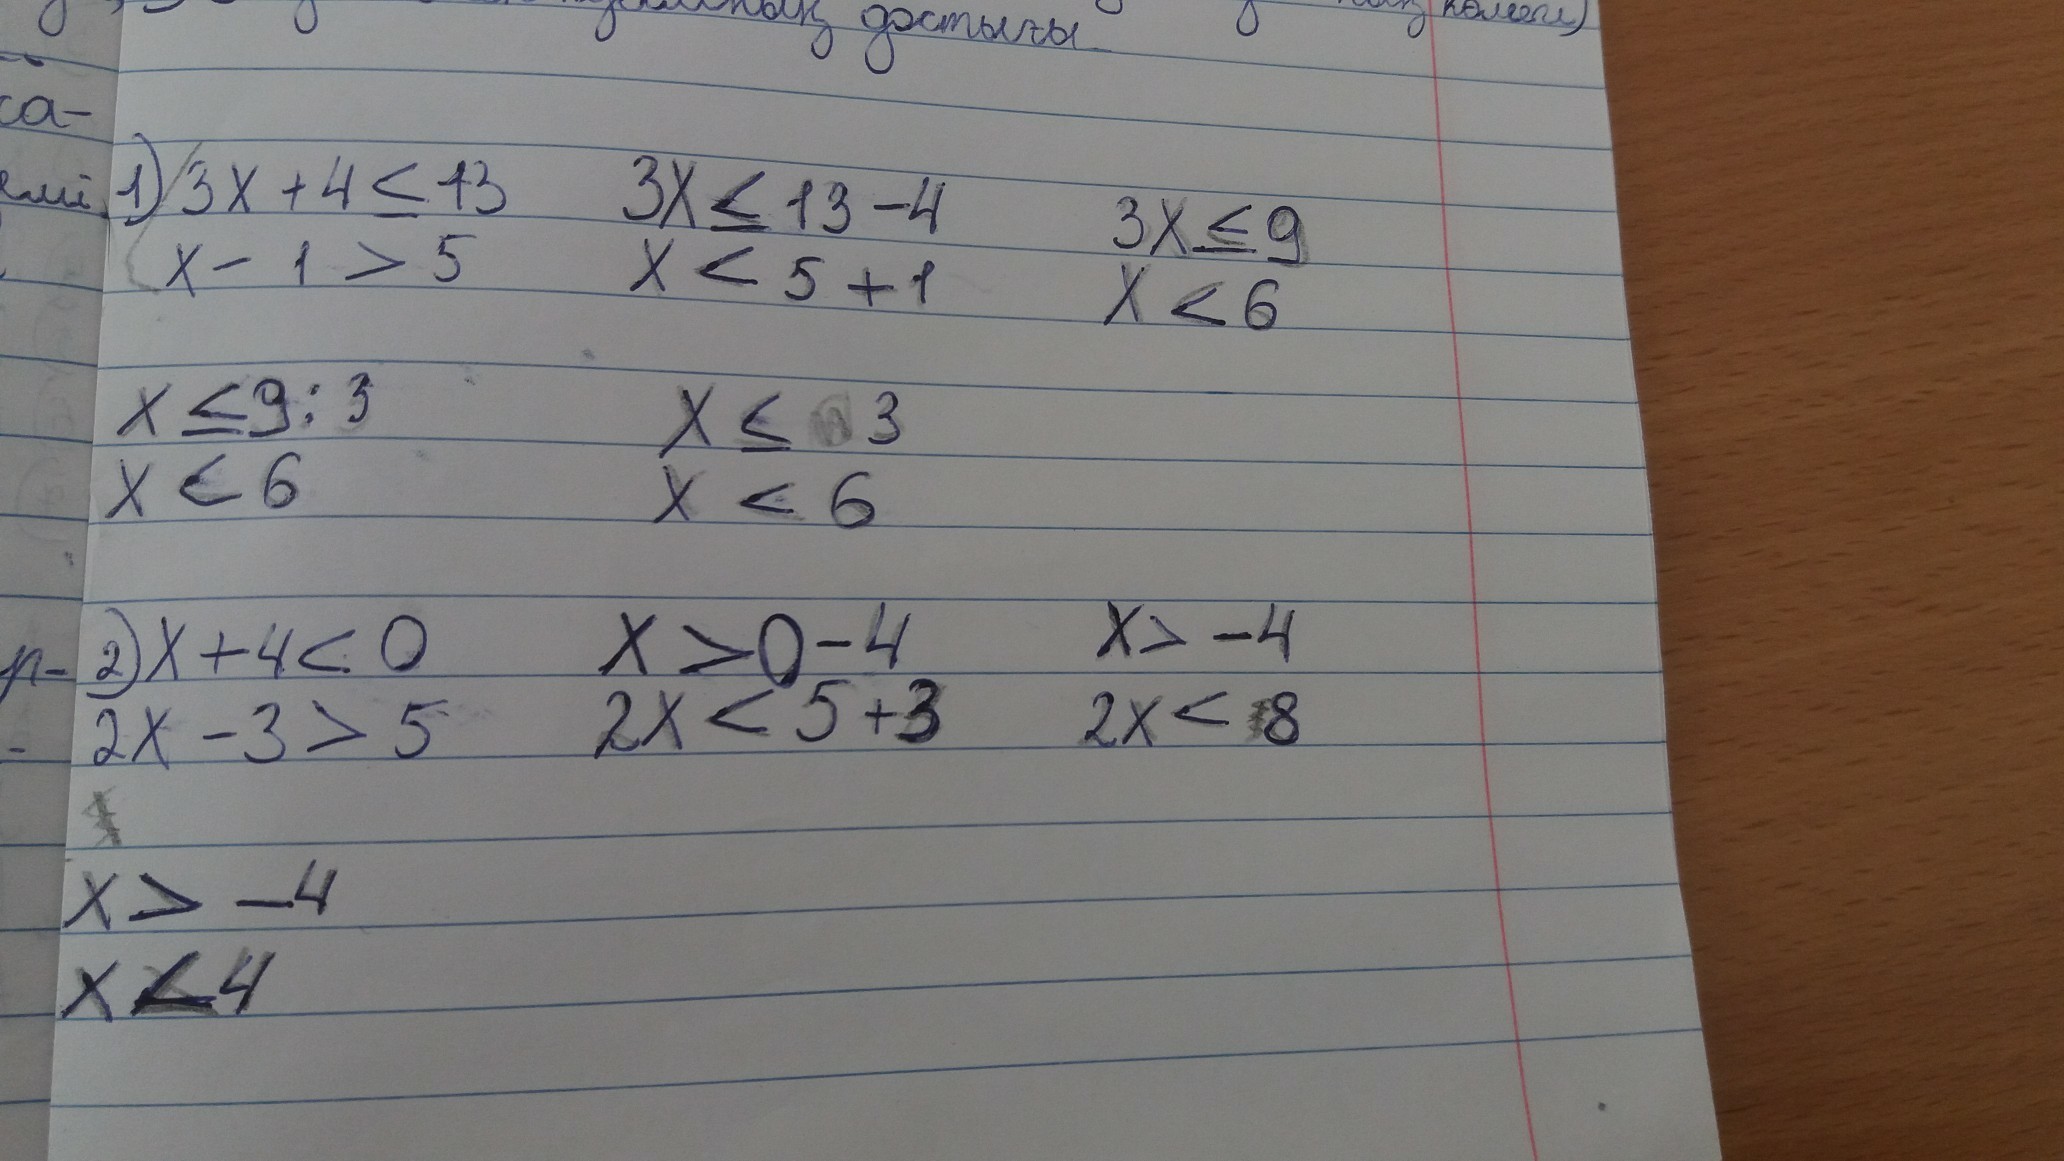 достығы
са-
1) 3x + 4 ≤ 13 3x ≤ 13 - 4 3x ≤ 9
x - 1 > 5 x < 5 + 1 x < 6
x ≤ 9 : 3 x ≤ 3
x < 6 x < 6
2) x + 4 < 0 x > 0 - 4 x > -4
2x - 3 > 5 2x < 5 + 3 2x < 8
x > -4
x < 4